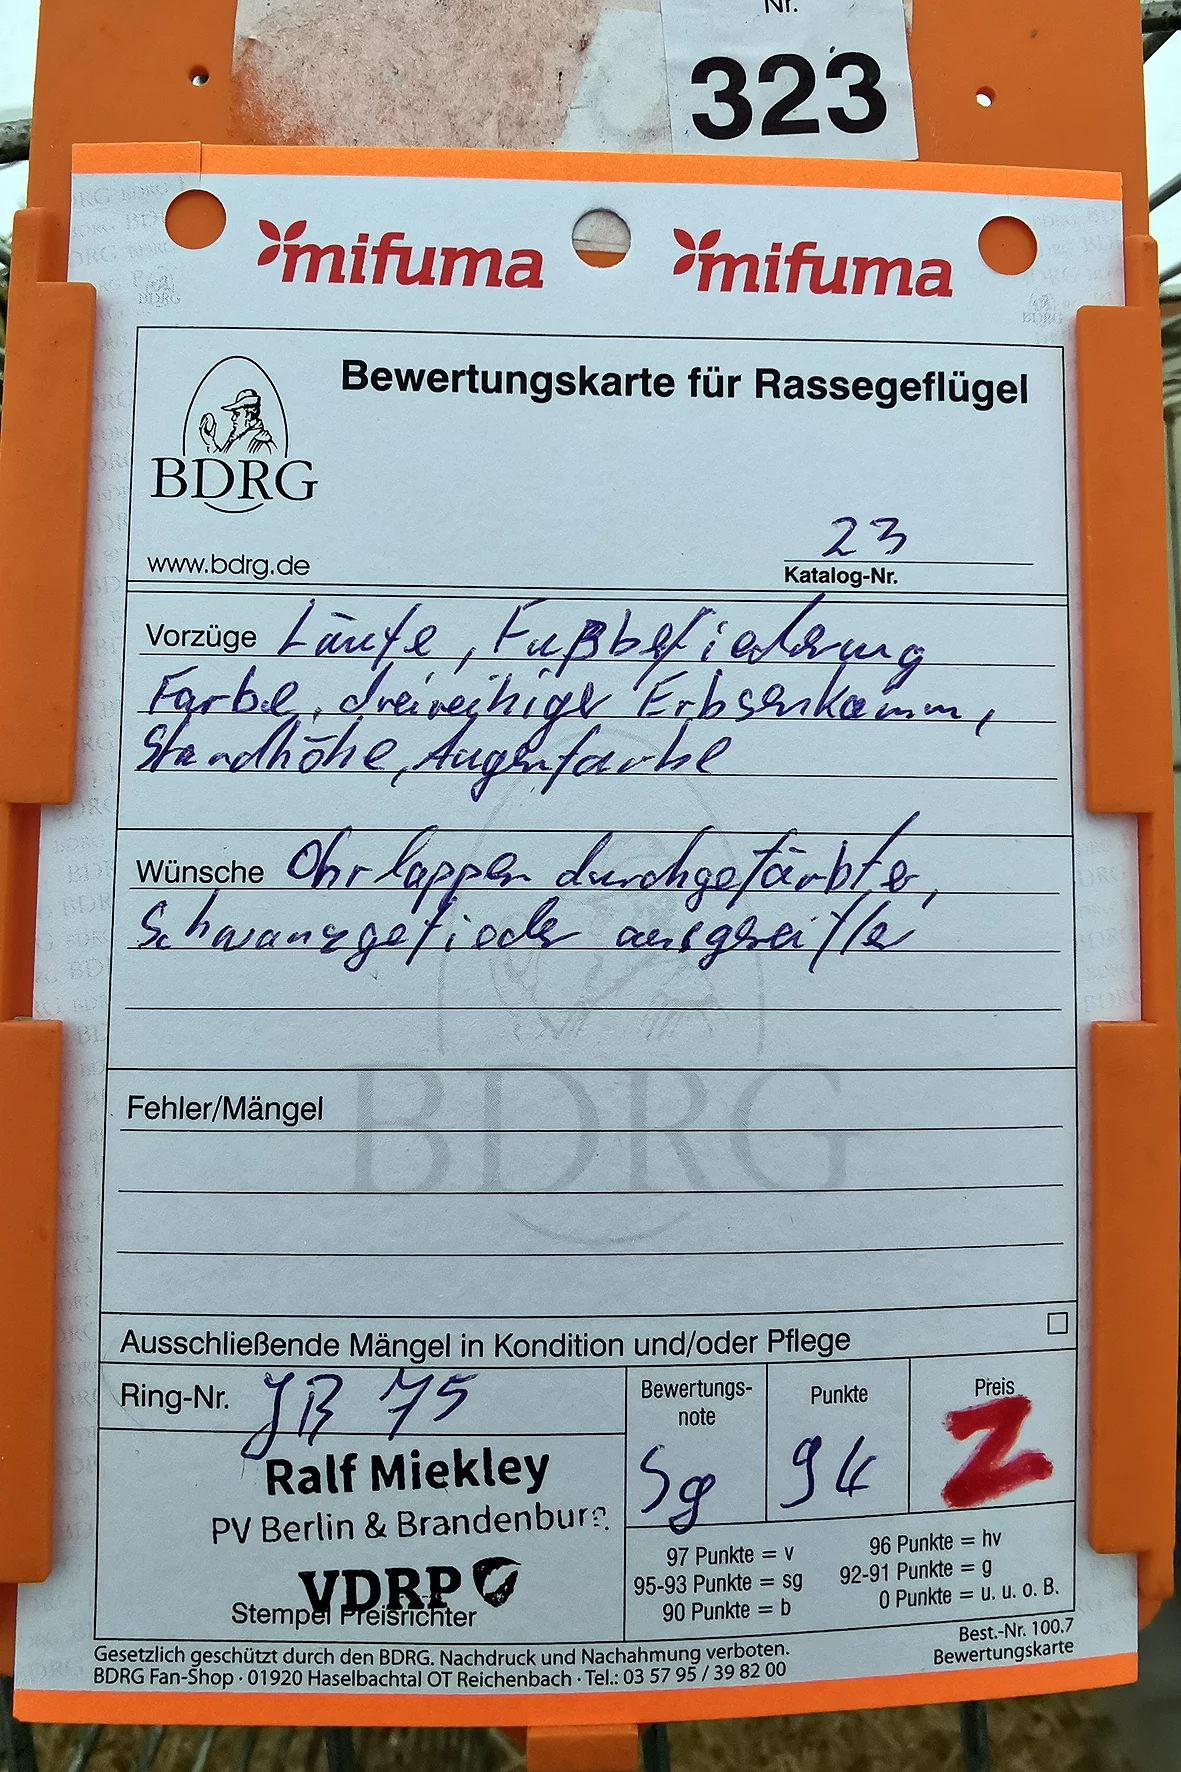 Nr.
323
mifuma mifuma
Bewertungskarte für Rassegeflügel
BDRG
www.bdrg.de
23
Katalog-Nr.
Vorzüge Läufe, Fußbefiederung
Farbe, dreireihiger Erbsenkamm,
Standhöhe, Augenfarbe
Wünsche Ohrlappen durchgefärbter,
Schwanzgefieder ausgereifter
BDRG
Fehler/Mängel
Ausschließende Mängel in Kondition und/oder Pflege
Ring-Nr. JB 75
Bewertungs-
note
Sg
Punkte
94
Preis
Z
Ralf Miekley
PV Berlin & Brandenburg.
VDRP
Stempel Preisrichter
97 Punkte = v
95-93 Punkte = sg
90 Punkte = b
96 Punkte = hv
92-91 Punkte = g
0 Punkte = u. u. o. B.
Gesetzlich geschützt durch den BDRG. Nachdruck und Nachahmung verboten.
BDRG Fan-Shop · 01920 Haselbachtal OT Reichenbach · Tel.: 03 57 95 / 39 82 00
Best.-Nr. 100.7
Bewertungskarte